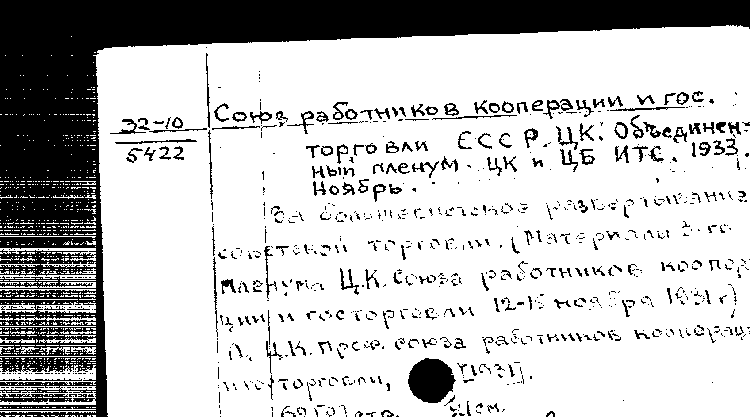 32-10
5422
Союз работников кооперации и гос.
торговли СССР. ЦК. Объединен-
ный пленум. ЦК и ЦБ ИТС. 1933.
Ноябрь.
За большевистское развертывание
советской торговли. (Материалы 3-го
пленума Ц.К. Союза работников коопер
ции и госторговли 12-15 ноября 1931 г)
Л. Ц.К. Проф. союза работников кооперац
и госторговли, [1931].
стр. см.